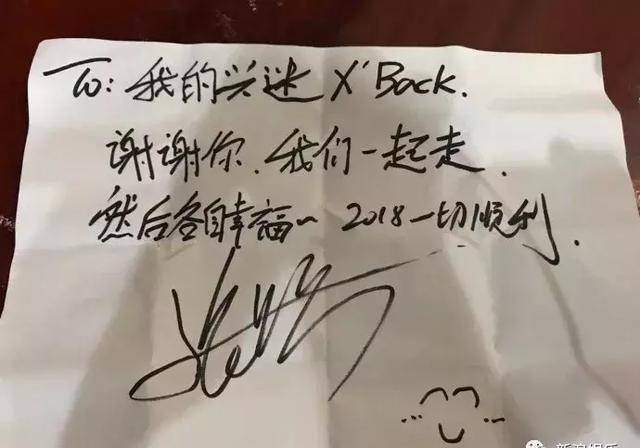 To: 我的兴迷 X'Back.
谢谢你.我们一起走.
然后各自幸福~ 2018一切顺利.